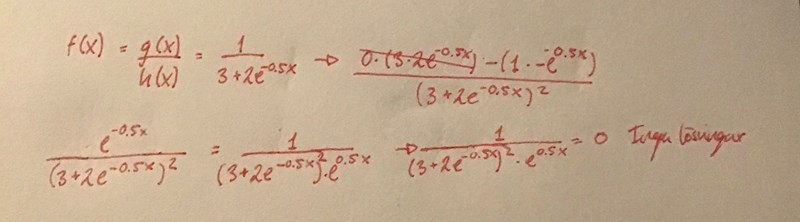 f(x) = g(x)/h(x) = 1/(3+2e^-0.5x) → (0·(3·2e^-0.5x) -(1·-e^-0.5x))/(3+2e^-0.5x)^2
e^-0.5x/(3+2e^-0.5x)^2 = 1/((3+2e^-0.5x)^2·e^0.5x) → 1/((3+2e^-0.5x)^2·e^0.5x) = 0 Inga lösningar